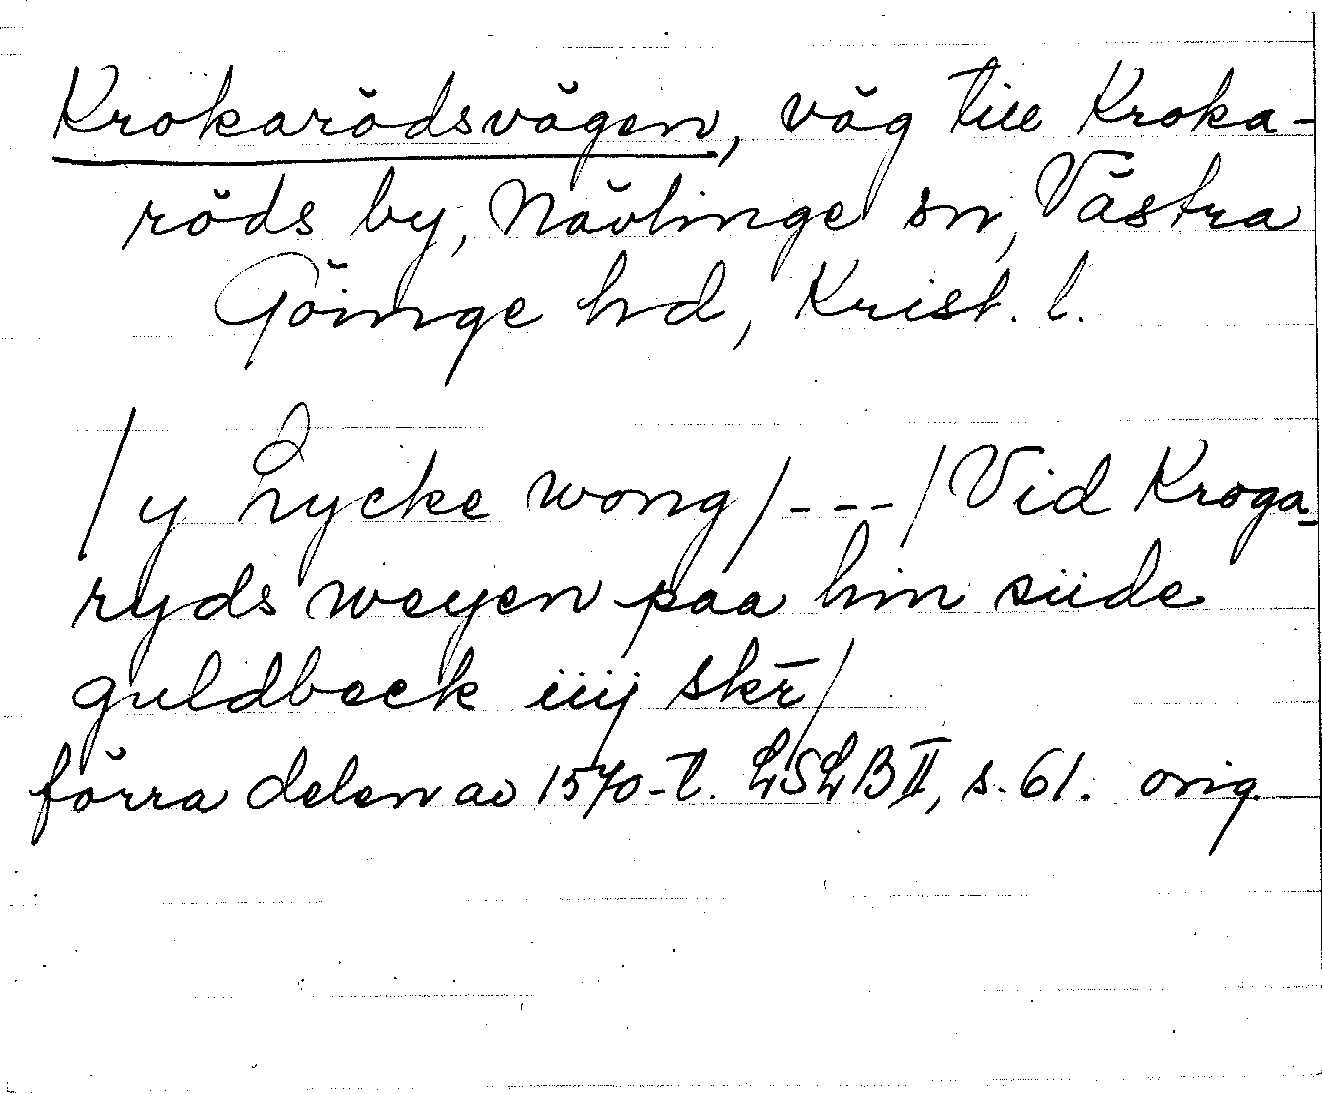 Krokarödsvägen, väg till Kroka-
röds by, Nävlinge sn, Västra
Göinge hd, Krist. l.
/y Lycke wong/---/Vid Kroga-
ryds weyen paa hin siide
guldbeck iiij skr̄/
förra delen av 1570-t. LSLB II, s. 61. orig.